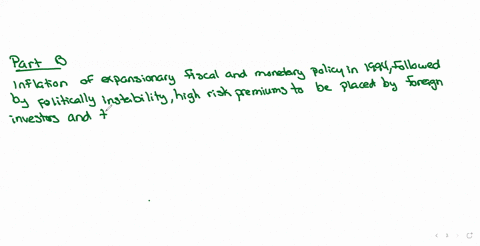 Part B
Inflation of expansionary fiscal and monetary policy in 1994, followed
by politically instability, high risk premiums to be placed by foreign
investors and t